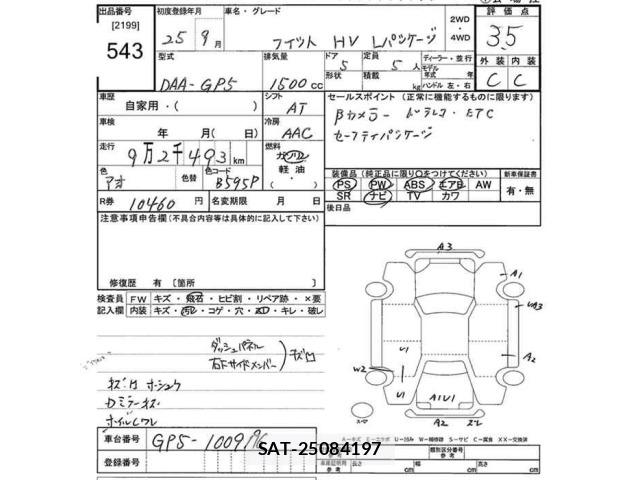 出品番号 初度登録年月 車名・グレード 評価点
[2199] 2WD
543 25年9月 フィット HV Lパッケージ 4WD 3.5
型式 排気量 ドア 定員 ディーラー・並行 外装 内装
DAA-GP5 1500cc 5 5人 モデル年式 年 C C
形状 積載 kg ハンドル 左・右
車歴 シフト セールスポイント (正常に機能するものに限ります)
自家用・( ) AT Bカメラ・ドラレコ・ETC
車検 冷房 セーフティパッケージ
年 月( 日) AAC
走行 燃料
9万2千493km ガソリン
色 色替 色コード 軽油・ 装備品 (純正品に限り○をつけてください) 新車保証書
アオ B595P ( ) PS PW ABS エアB AW 有・無
R券 10460円 名変期限 月 日 SR ナビ TV カワ
注意事項申告欄(不具合内容等は具体的に記入して下さい) 後日品
修復歴 有 [箇所 ]
A3
A1
UA3
検査員 FW キズ・飛石・ヒビ割・リペア跡・×要
記入欄 内装 キズ・汚レ・コゲ・穴・スレ・キレ・破レ
ダッシュパネル
右Fサイドメンバー キズ凹
U1 A2
W2
キズ凹 ホシュウ U1 A1U1
Dミラーキズ
ホイルCワレ スペア A2
車台番号 GP5-1009
SAT-25084197
登録番号